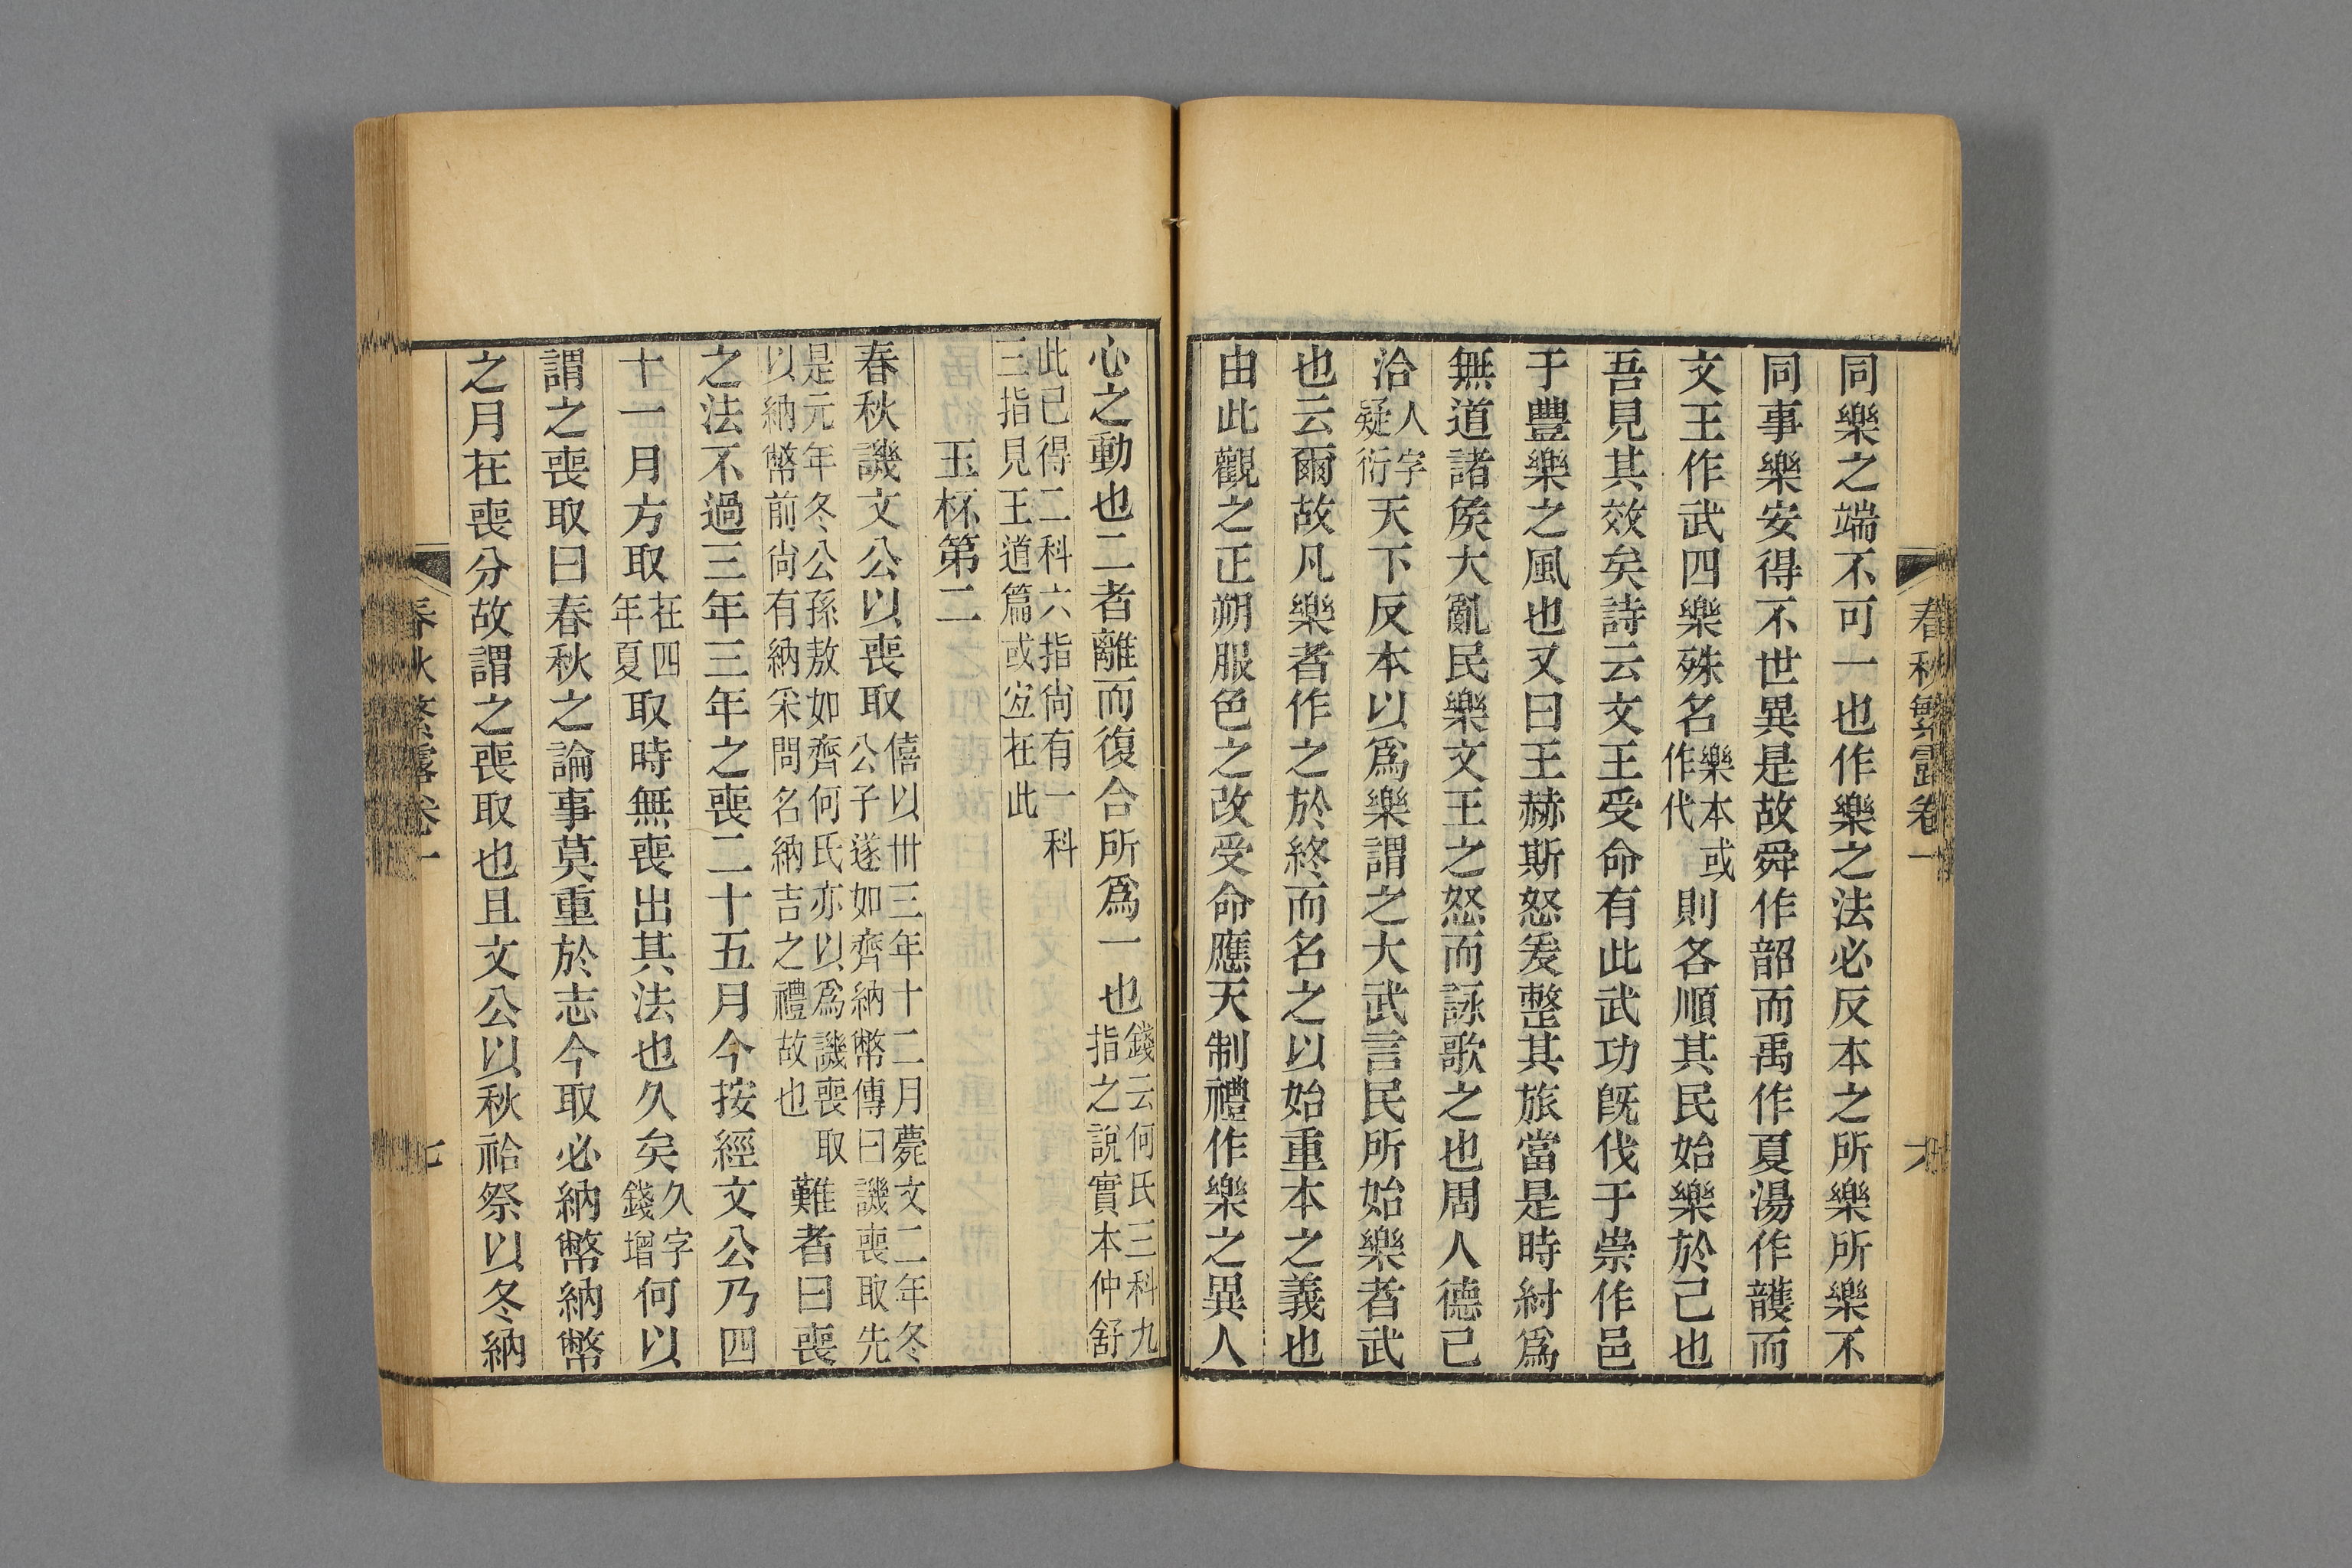 春秋繁露卷一
六
同樂之端不可一也作樂之法必反本之所樂所樂不
同事樂安得不世異是故舜作韶而禹作夏湯作頀而
文王作武四樂殊名樂本或作代則各順其民始樂於己也
吾見其效矣詩云文王受命有此武功旣伐于崇作邑
于豐樂之風也又曰王赫斯怒爰整其旅當是時紂爲
無道諸矦大亂民樂文王之怒而詠歌之也周人德已
洽人字疑衍天下反本以爲樂謂之大武言民所始樂者武
也云爾故凡樂者作之於終而名之以始重本之義也
由此觀之正朔服色之改受命應天制禮作樂之異人
心之動也二者離而復合所爲一也錢云何氏三科九指之說實本仲舒
此已得二科六指尙有一科三指見王道篇或宐在此
玉杯第二
春秋譏文公以喪取僖以卅三年十二月薨文二年冬公子遂如齊納幣傳曰譏喪取先
是元年冬公孫敖如齊何氏亦以爲譏喪取以納幣前尙有納采問名納吉之禮故也難者曰喪
之法不過三年三年之喪二十五月今按經文公乃四
十一月方取在四年夏取時無喪出其法也久矣久字錢增何以
謂之喪取曰春秋之論事莫重於志今取必納幣納幣
之月在喪分故謂之喪取也且文公以秋祫祭以冬納
春秋繁露卷一
七